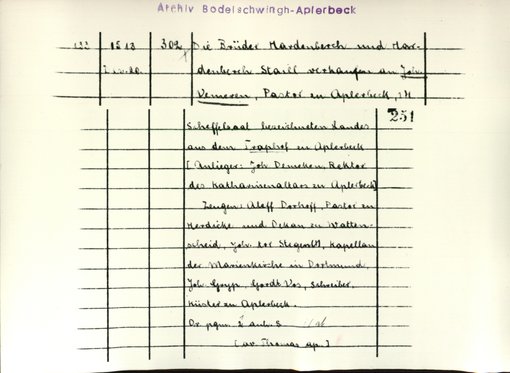 Archiv Bodelschwingh-Aplerbeck
122 1513 302 Die Brüder Mardenberch und Mar-
denberch Staill verkaufen an Joh.
Vemeren, Pastor zu Aplerbeck, 1 1/2
251
Scheffelsaat bezeichneten Landes
aus dem Traphof zu Aplerbeck
[Anlieger: Joh. Demeken, Rektor
des Katharinenaltars zu Aplerbeck]
Zeugen: Aloff Dorhoff, Pastor zu
Herdicke und Dekan zu Watten-
scheid, Joh. tor Stegen, Kapellan
der Marienkirche in Dortmund,
Joh. Gryp, Gordt Vos, Schreiber,
Küster zu Aplerbeck.
Or. pgm. 2 anh. S
(av. Thomas ap.)